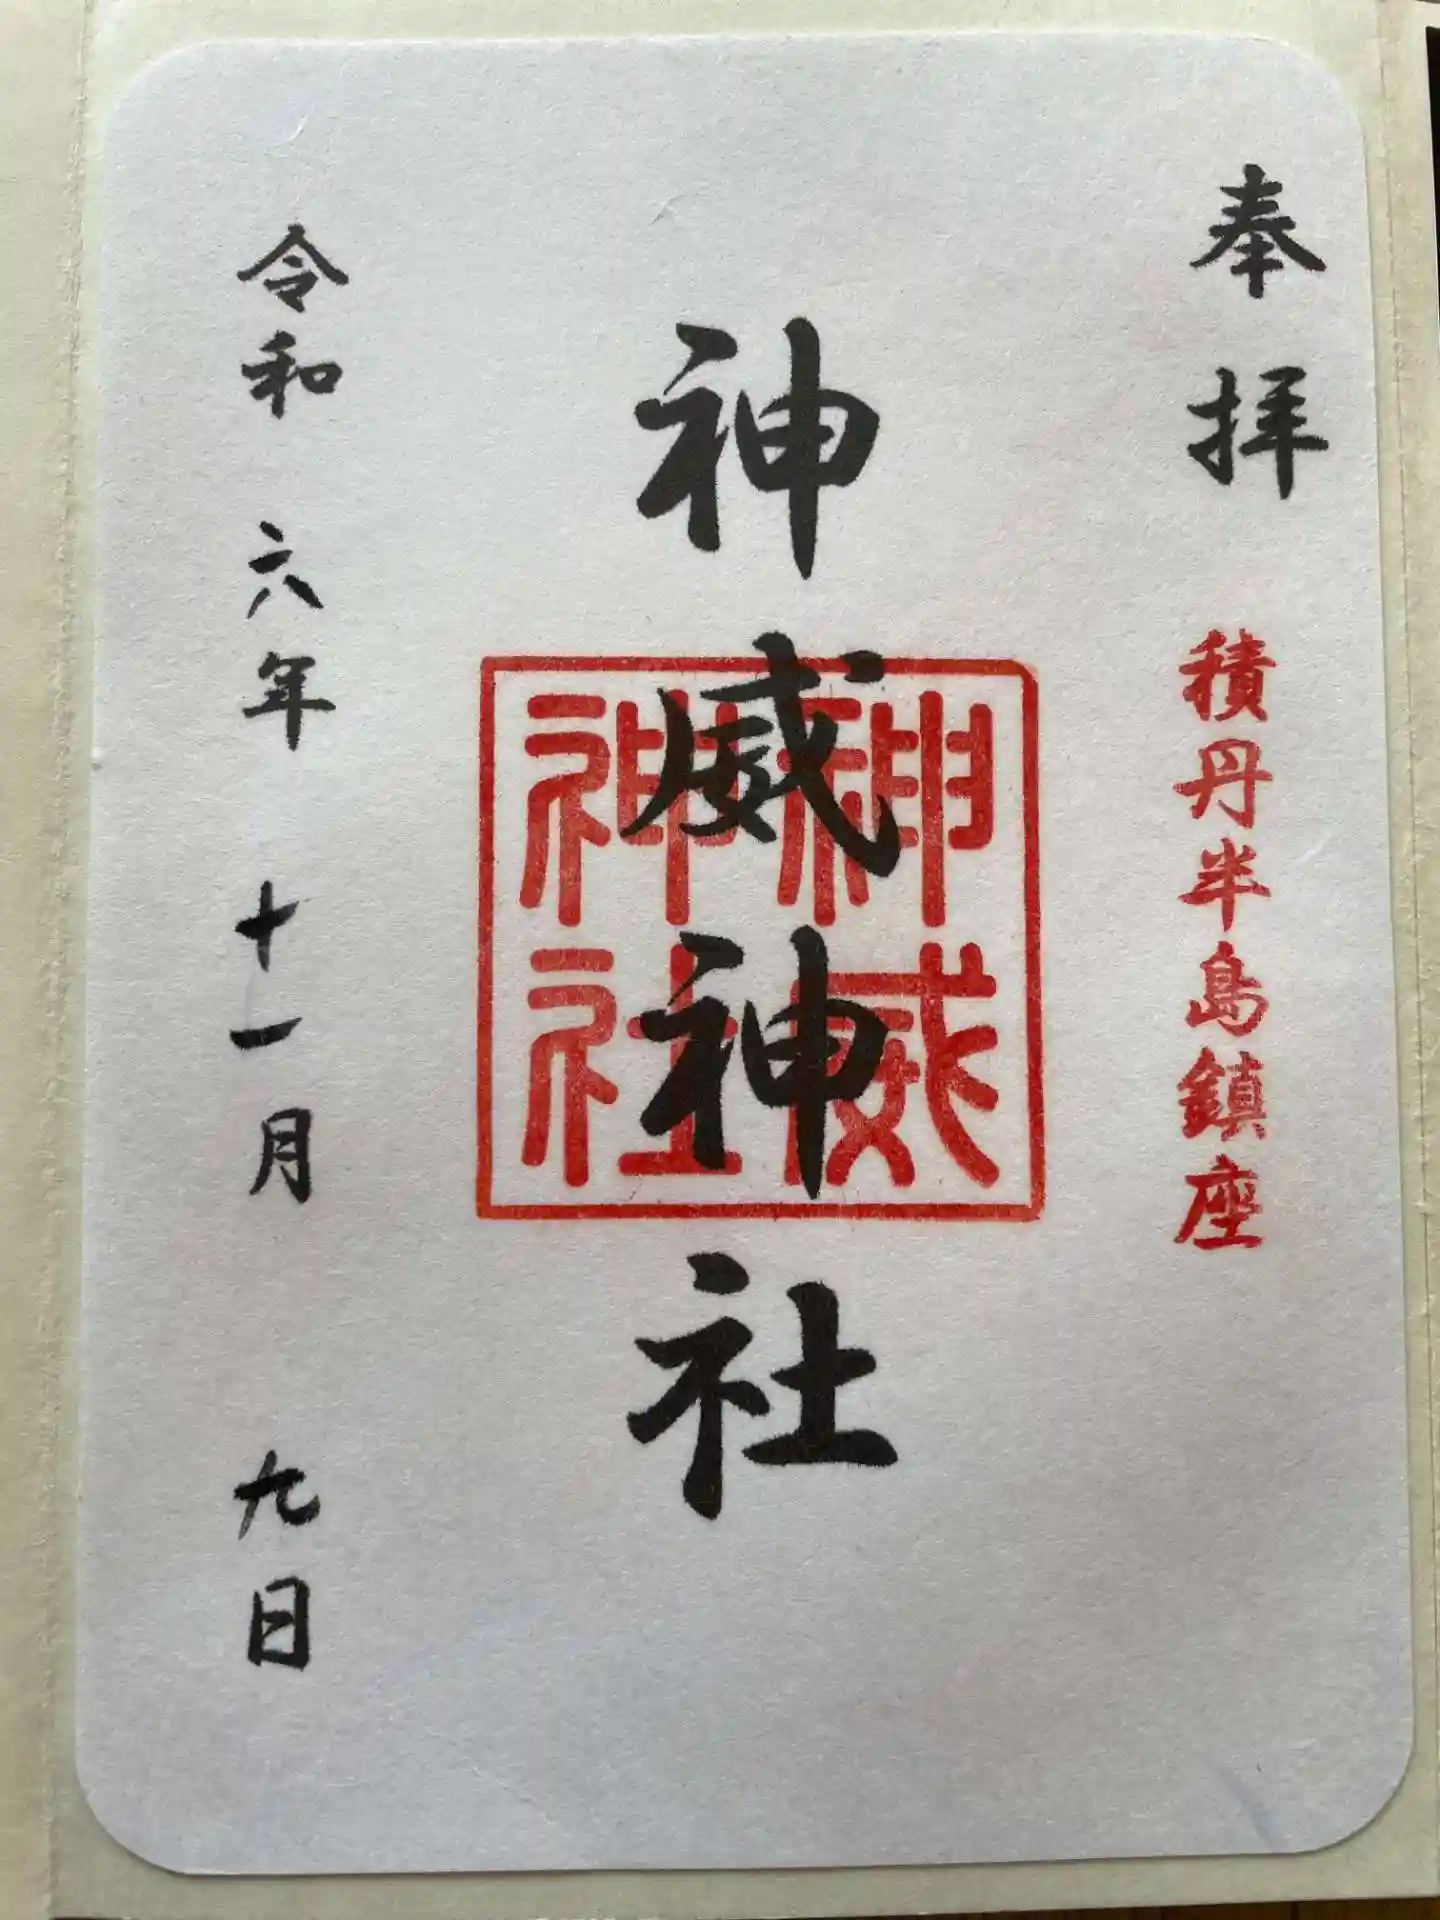 奉拝
積丹半島鎮座
神威神社
神威
神社
令和六年十一月九日